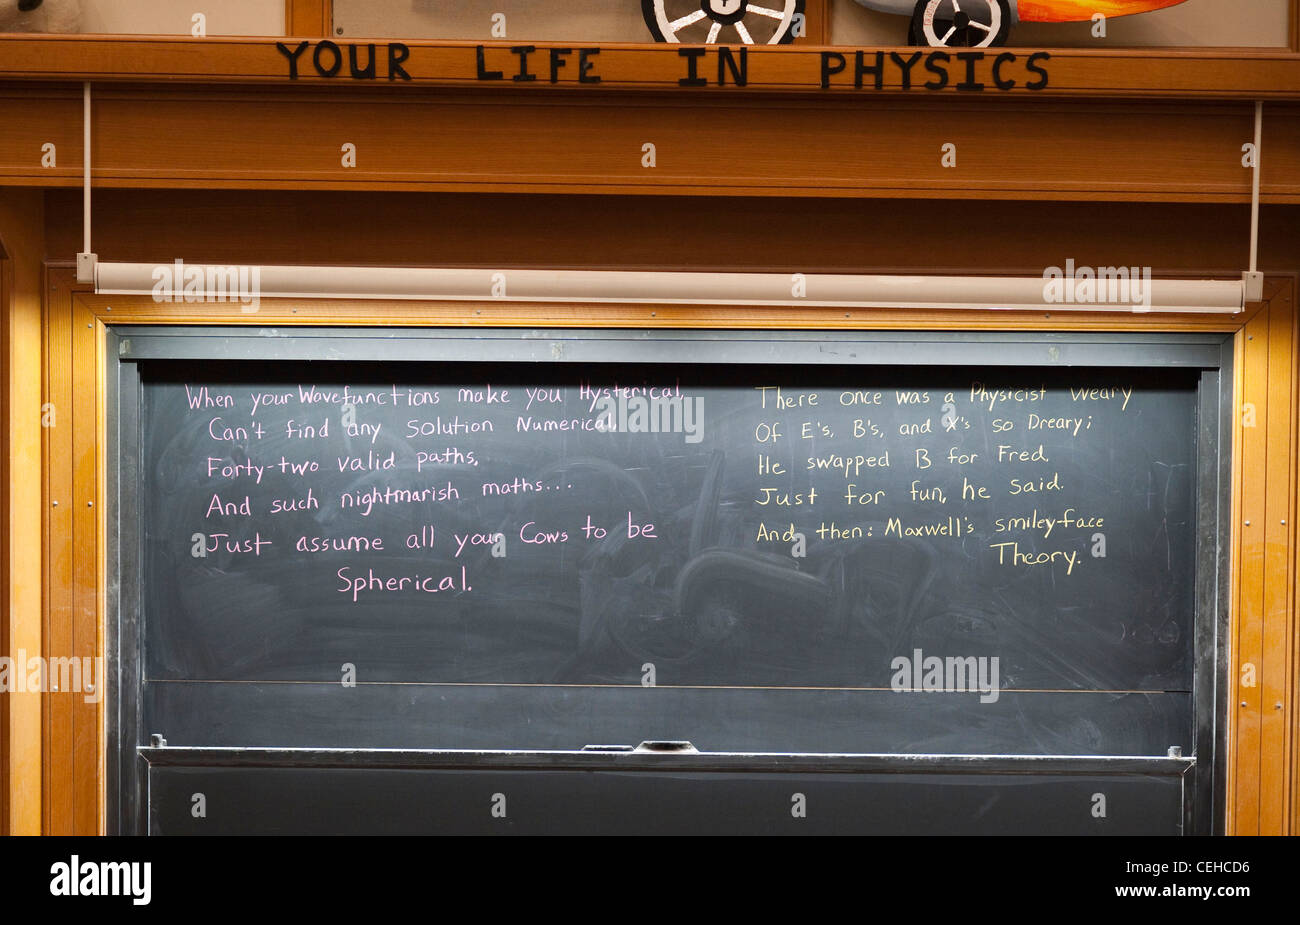 YOUR LIFE IN PHYSICS
When your Wavefunctions make you Hysterical,
Can't find any solution Numerical,
Forty-two valid paths,
And such nightmarish maths...
Just assume all your Cows to be
Spherical.
There once was a Physicist weary
Of E's, B's, and X's so Dreary;
He swapped B for Fred,
Just for fun, he said.
And then: Maxwell's smiley-face
Theory.
a a a a a
alamy a a alamy
alamy a a alamy
a a a a
alamy
Image ID: CEHCD6
www.alamy.com